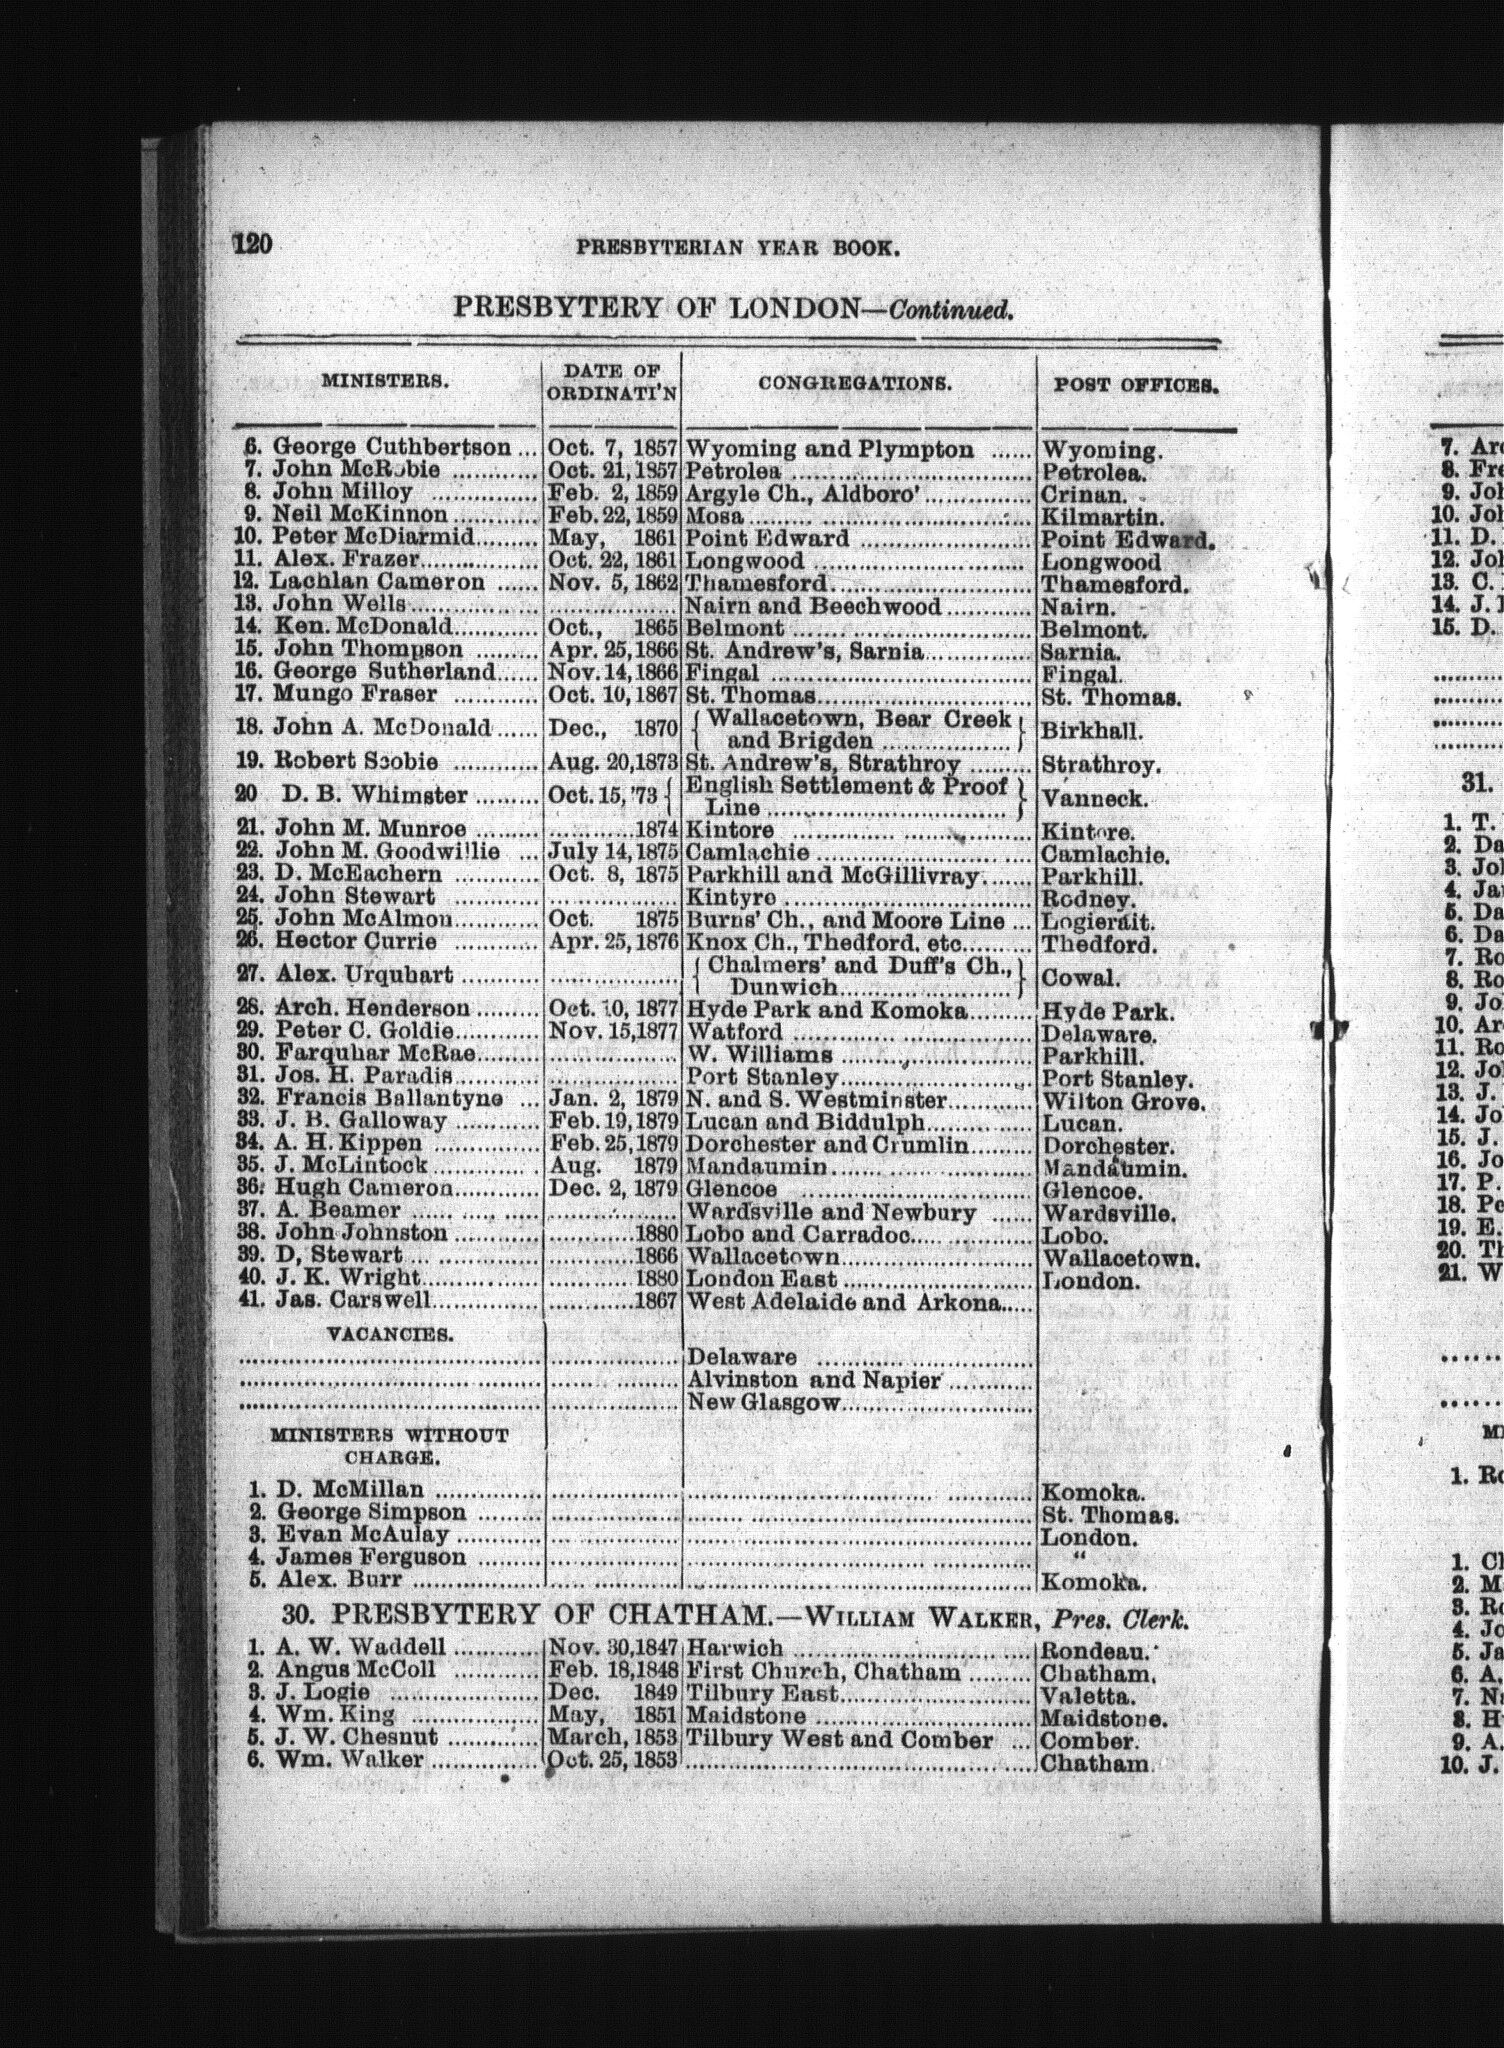 120
PRESBYTERIAN YEAR BOOK.
PRESBYTERY OF LONDON—Continued.
MINISTERS. DATE OF ORDINATI'N CONGREGATIONS. POST OFFICES.
6. George Cuthbertson ... Oct. 7, 1857 Wyoming and Plympton ...... Wyoming.
7. John McRobie ............ Oct. 21, 1857 Petrolea ............ Petrolea.
8. John Milloy ............ Feb. 2, 1859 Argyle Ch., Aldboro' ............ Crinan.
9. Neil McKinnon ............ Feb. 22, 1859 Mosa ............ Kilmartin.
10. Peter McDiarmid ......... May, 1861 Point Edward ............ Point Edward.
11. Alex. Frazer ............ Oct. 22, 1861 Longwood ............ Longwood
12. Lachlan Cameron ...... Nov. 5, 1862 Thamesford ............ Thamesford.
13. John Wells ............ Nairn and Beechwood ............ Nairn.
14. Ken. McDonald ............ Oct., 1865 Belmont ............ Belmont.
15. John Thompson ......... Apr. 25, 1866 St. Andrew's, Sarnia ............ Sarnia.
16. George Sutherland ...... Nov. 14, 1866 Fingal ............ Fingal.
17. Mungo Fraser ............ Oct. 10, 1867 St. Thomas ............ St. Thomas.
18. John A. McDonald ...... Dec., 1870 { Wallacetown, Bear Creek
and Brigden ............ } Birkhall.
19. Robert Scobie ............ Aug. 20, 1873 St. Andrew's, Strathroy ......... Strathroy.
20 D. B. Whimster ......... Oct. 15, '73 { English Settlement & Proof
Line ............ } Vanneck.
21. John M. Munroe ......... 1874 Kintore ............ Kintore.
22. John M. Goodwillie ... July 14, 1875 Camlachie ............ Camlachie.
23. D. McEachern ............ Oct. 8, 1875 Parkhill and McGillivray ....... Parkhill.
24. John Stewart ............ Kintyre ............ Rodney.
25. John McAlmon ............ Oct. 1875 Burns' Ch., and Moore Line ... Logierait.
26. Hector Currie ............ Apr. 25, 1876 Knox Ch., Thedford, etc. ......... Thedford.
27. Alex. Urquhart ............ { Chalmers' and Duff's Ch.,
Dunwich ............ } Cowal.
28. Arch. Henderson ......... Oct. 10, 1877 Hyde Park and Komoka ......... Hyde Park.
29. Peter C. Goldie ............ Nov. 15, 1877 Watford ............ Delaware.
30. Farquhar McRae ............ W. Williams ............ Parkhill.
31. Jos. H. Paradis ............ Port Stanley ............ Port Stanley.
32. Francis Ballantyne ... Jan. 2, 1879 N. and S. Westminster ............ Wilton Grove.
33. J. B. Galloway ............ Feb. 19, 1879 Lucan and Biddulph ............ Lucan.
34. A. H. Kippen ............ Feb. 25, 1879 Dorchester and Crumlin ......... Dorchester.
35. J. McLintock ............ Aug. 1879 Mandaumin ............ Mandaumin.
36. Hugh Cameron ............ Dec. 2, 1879 Glencoe ............ Glencoe.
37. A. Beamer ............ Wardsville and Newbury ...... Wardsville.
38. John Johnston ............ 1880 Lobo and Carradoc ............ Lobo.
39. D, Stewart ............ 1866 Wallacetown ............ Wallacetown.
40. J. K. Wright ............ 1880 London East ............ London.
41. Jas. Carswell ............ 1867 West Adelaide and Arkona .....
VACANCIES.
............ Delaware ............
............ Alvinston and Napier ............
............ New Glasgow ............
MINISTERS WITHOUT
CHARGE.
1. D. McMillan ............ Komoka.
2. George Simpson ............ St. Thomas.
3. Evan McAulay ............ London.
4. James Ferguson ............ "
5. Alex. Burr ............ Komoka.
30. PRESBYTERY OF CHATHAM.—WILLIAM WALKER, Pres. Clerk.
1. A. W. Waddell ............ Nov. 30, 1847 Harwich ............ Rondeau.
2. Angus McColl ............ Feb. 18, 1848 First Church, Chatham ......... Chatham.
3. J. Logie ............ Dec. 1849 Tilbury East ............ Valetta.
4. Wm. King ............ May, 1851 Maidstone ............ Maidstone.
5. J. W. Chesnut ............ March, 1853 Tilbury West and Comber ... Comber.
6. Wm. Walker ............ Oct. 25, 1853 ............ Chatham.
7.
8.
9.
10.
11. D.
12.
13. C.
14. J.
15. D.
31.
1. T.
2.
3.
4.
5.
6.
7.
8.
9.
10.
11.
12.
13. J.
14.
15. J.
16.
17. P.
18.
19. E.
20.
21.
1.
1.
2.
3.
4.
5.
6. A.
7.
8.
9. A.
10. J.